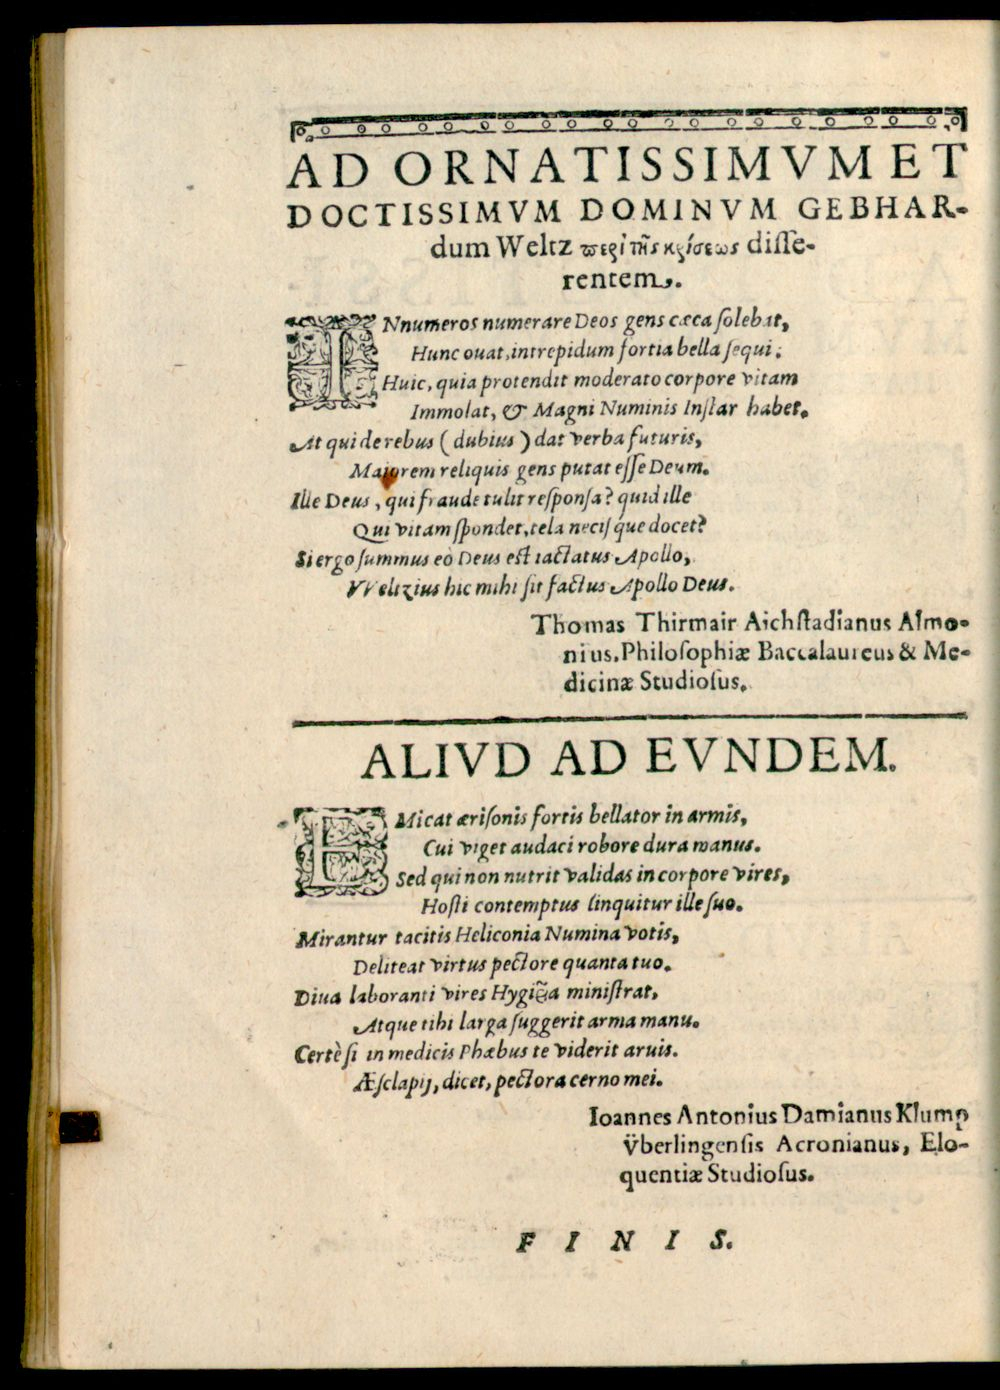 AD ORNATISSIMVM ET
DOCTISSIMVM DOMINVM GEBHAR-
dum Weltz περὶ τῆς κρίσεως diſſe-
rentem.
INnumeros numerare Deos gens cæca ſolebat,
Hunc ouat, intrepidum fortia bella ſequi:
Huic, quia protendit moderato corpore vitam
Immolat, & Magni Numinis Inſtar habet.
At qui de rebus (dubius) dat verba futuris,
Maiorem reliquis gens putat eſſe Deum.
Ille Deus, qui fraude tulit reſponſa? quid ille
Qui vitam ſpondet, tela neciſque docet?
Si ergo ſummus eò Deus eſt iactatus Apollo,
VVeltzius hic mihi ſit factus Apollo Deus.
Thomas Thirmair Aichſtadianus Almo-
nius. Philoſophiæ Baccalaureus & Me-
dicinæ Studioſus.
ALIVD AD EVNDEM.
EMicat æriſonis fortis bellator in armis,
Cui viget audaci robore dura manus.
Sed qui non nutrit validas in corpore vires,
Hoſti contemptus linquitur ille ſuo.
Mirantur tacitis Heliconia Numina votis,
Deliteat virtus pectore quanta tuo.
Diua laboranti vires Hygiæa miniſtrat,
Atque tibi larga ſuggerit arma manu.
Certè ſi in medicis Phæbus te viderit aruis.
Æſclapij, dicet, pectora cerno mei.
Ioannes Antonius Damianus Klump
Vberlingenſis Acronianus, Elo-
quentiæ Studioſus.
FINIS.